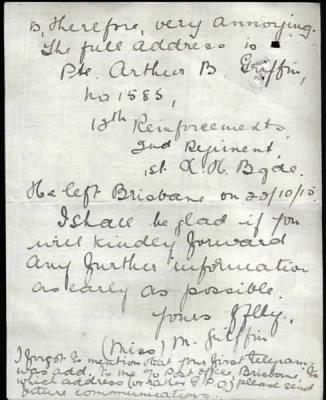 is, therefore, very annoying.
The full address is –
Pte. Arthur B Griffin,
No 1585,
13th Reinforcements,
2nd Regiment,
1st. L. H. Bgde.
He left Brisbane on 20/10/15
I shall be glad if you
will kindly forward
any further information
as early as possible.
Yours ffly.
(Miss) M. Griffin
I forgot to mention that your first telegram
was add. to me Yo Post Office, Brisbane, to
which address (or rather G.P.O.) please send
future communications.